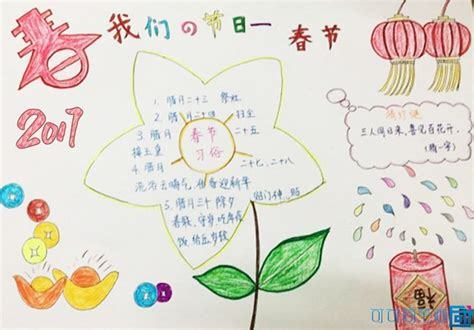 春
我们の节日一 春节
2017
1. 腊月二十三 祭灶
2. 腊月二十四 扫尘
3. 腊月 二十五
接玉皇
春节
习俗
4. 腊月
二十七、二十八
洗浴去晦气,准备迎新年
5. 腊月三十 除夕 贴门神、贴
春联、守岁吃年夜
饭 给压岁钱
猜灯谜
三人同日来,喜见百花开.
(猜一字)
福